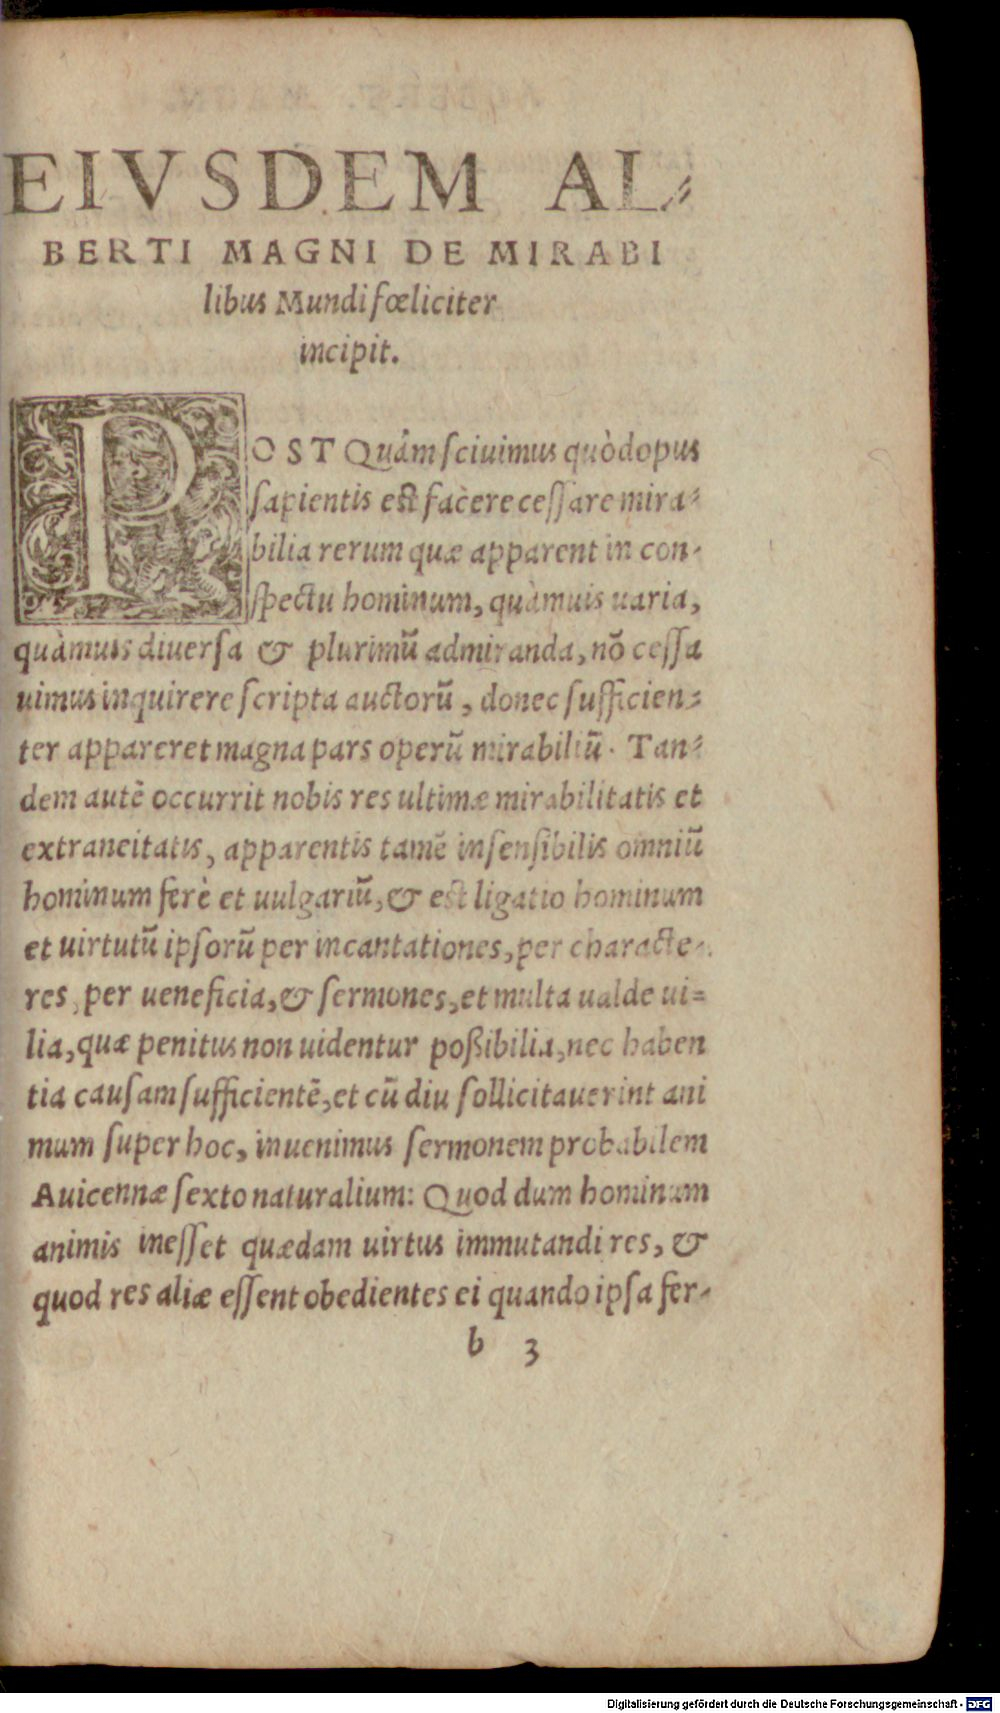 EIVSDEM AL-
BERTI MAGNI DE MIRABI
libus Mundi fœliciter
incipit.
POST Quâm sciuimus quòd opus
sapientis est facere cessare mira-
bilia rerum quæ apparent in con-
spectu hominum, quàmuis uaria,
quàmuis diuersa & plurimũ admiranda, nõ cessa
uimus inquirere scripta auctorũ, donec sufficien-
ter appareret magna pars operũ mirabiliũ. Tan-
dem autẽ occurrit nobis res ultimæ mirabilitatis et
extraneitatis, apparentis tamẽ insensibilis omniũ
hominum ferè et uulgariũ, & est ligatio hominum
et uirtutũ ipsorũ per incantationes, per characte-
res, per ueneficia, & sermones, et multa ualde ui-
lia, quæ penitus non uidentur poßibilia, nec haben
tia causam sufficientẽ, et cũ diu sollicitauerint ani
mum super hoc, inuenimus sermonem probabilem
Auicennæ sexto naturalium: Quod dum hominum
animis inesset quædam uirtus immutandi res, &
quod res aliæ essent obedientes ei quando ipsa fer-
b 3
Digitalisierung gefördert durch die Deutsche Forschungsgemeinschaft - DFG